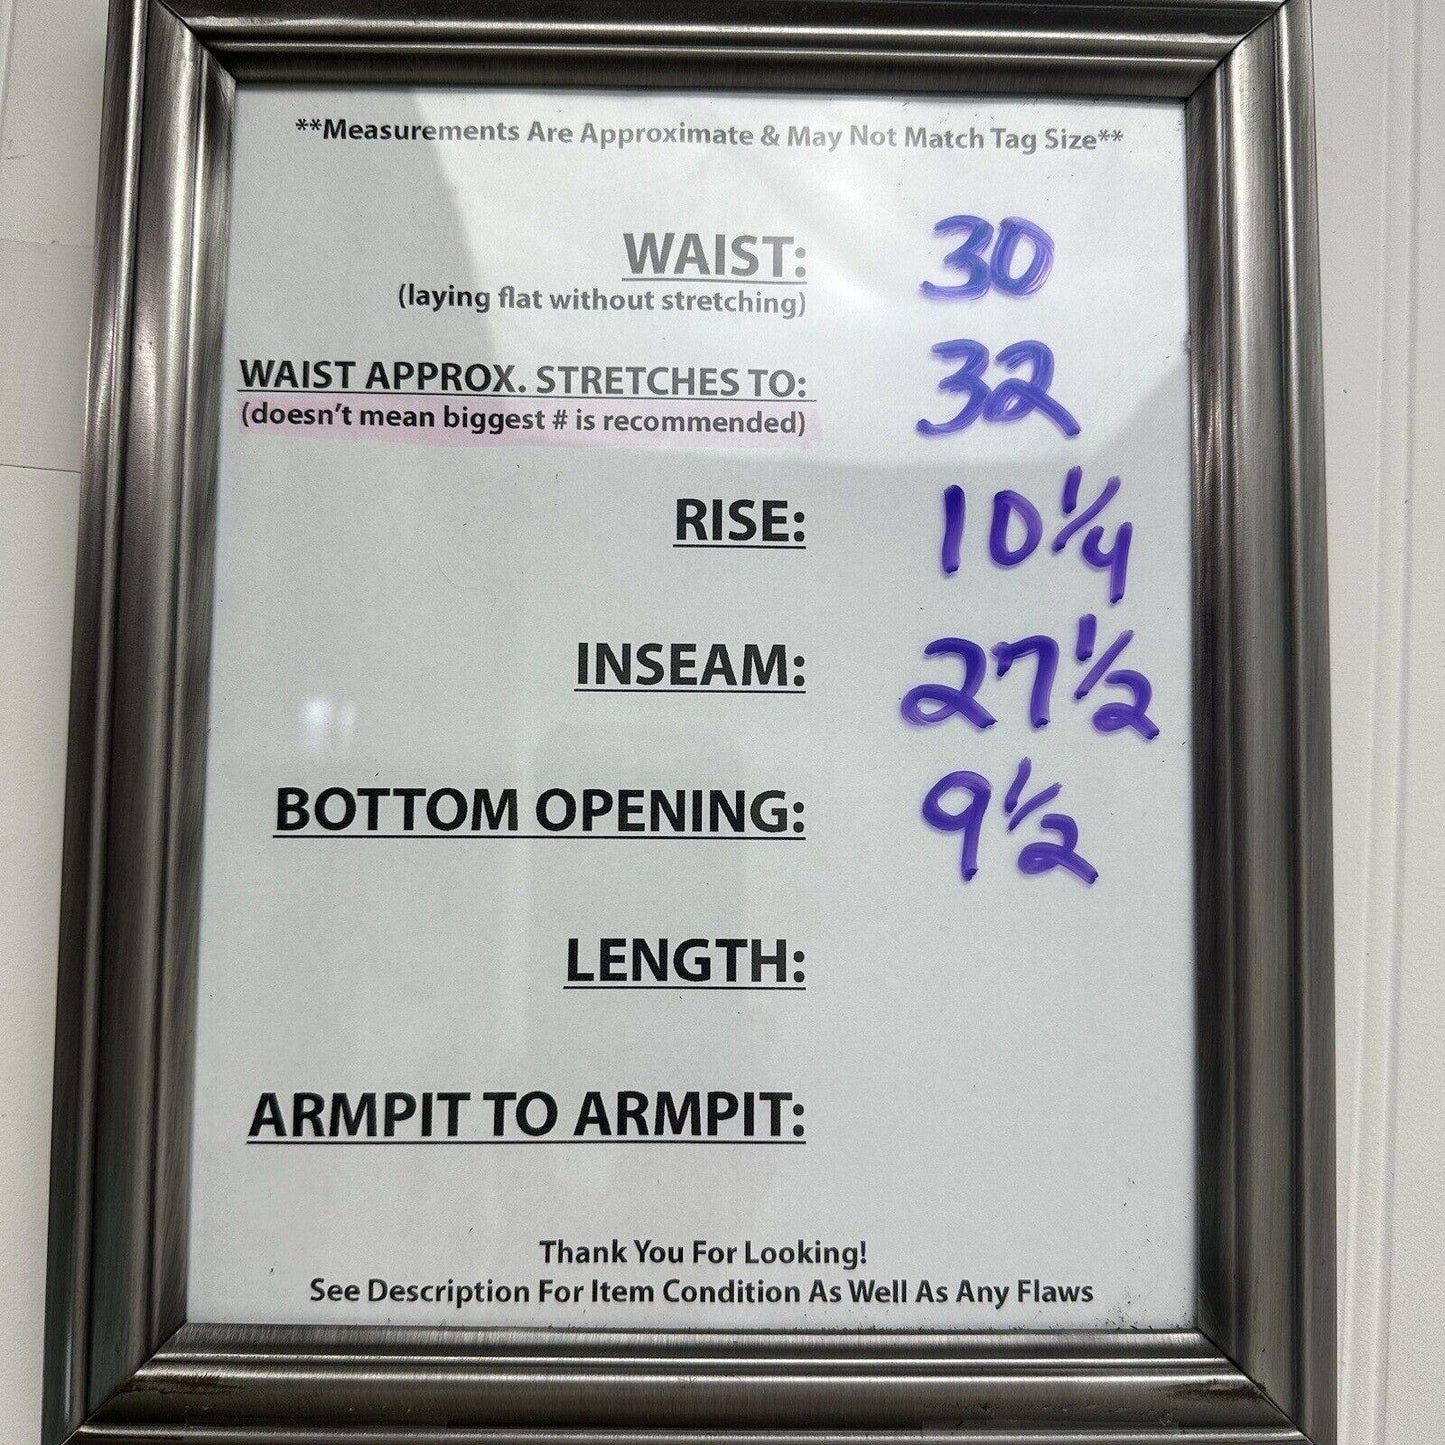 **Measurements Are Approximate & May Not Match Tag Size**
WAIST: 30
(laying flat without stretching)
WAIST APPROX. STRETCHES TO: 32
(doesn't mean biggest # is recommended)
RISE: 10 1/4
INSEAM: 27 1/2
BOTTOM OPENING: 9 1/2
LENGTH:
ARMPIT TO ARMPIT:
Thank You For Looking!
See Description For Item Condition As Well As Any Flaws